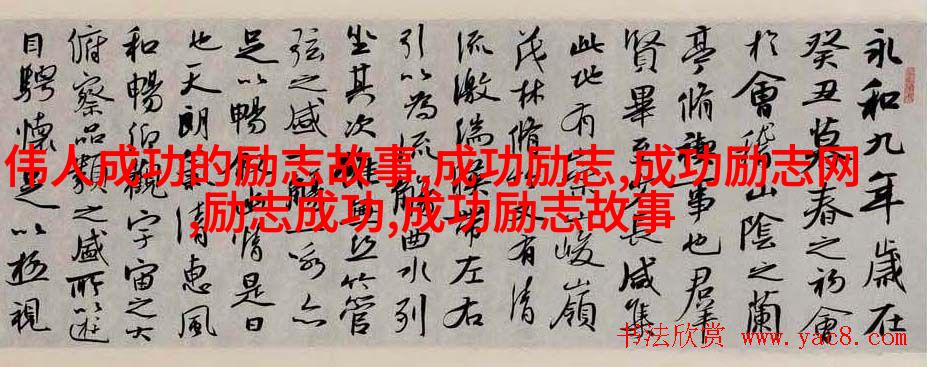 永和九年歲在
癸丑暮春之初會
於會稽山陰之蘭
亭脩禊事也群
賢畢至少長咸集
此地有崇山峻嶺
茂林脩竹又有清
流激湍映帶左右
引以為流觴曲水列
坐其次雖無絲竹管
弦之盛一觴一詠亦
足以暢敘幽情是日
也天朗氣清惠風
和暢仰觀宇宙之大
俯察品類之盛所以遊
目騁懷足以極視
伟人成功的励志故事,成功励志,成功励志网
,励志成功,成功励志故事
书法欣赏 www.yac8.com